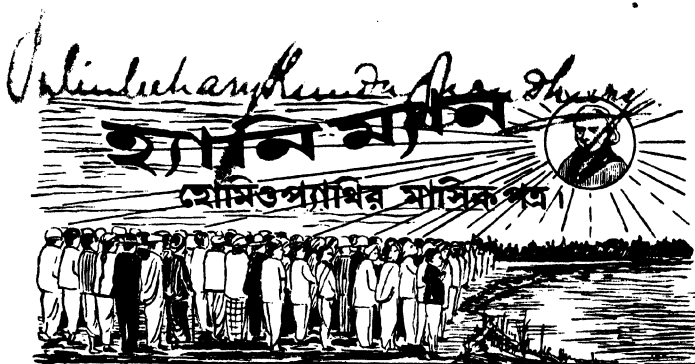 হ্যানিম্যান
হোমিওপ্যাথির মাসিক পত্র।